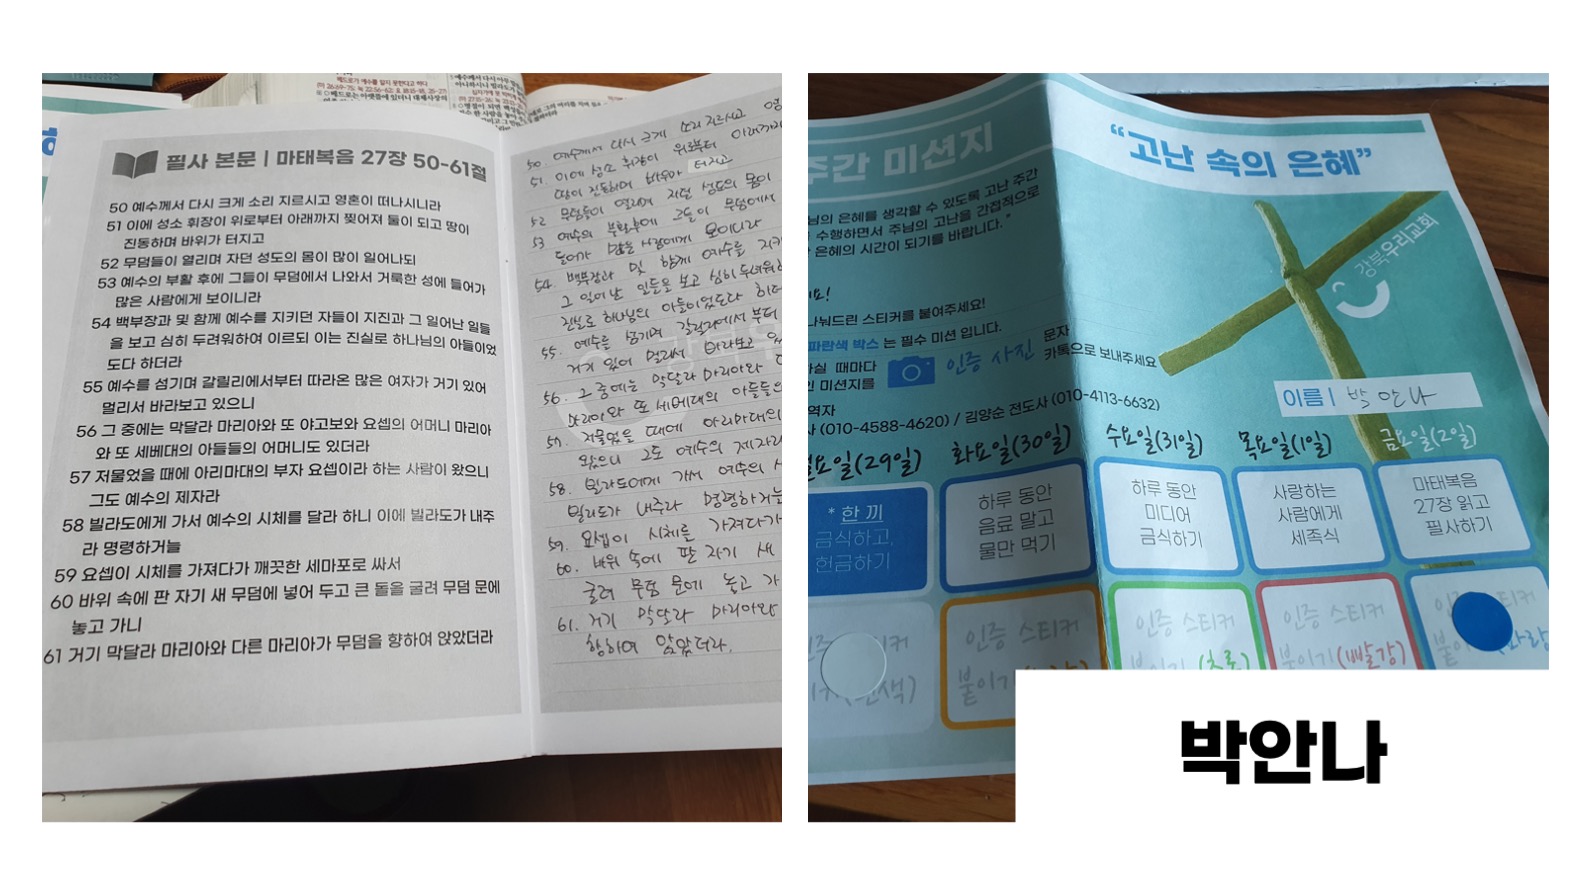 필사 본문 | 마태복음 27장 50-61절
50 예수께서 다시 크게 소리 지르시고 영혼이 떠나시니라
51 이에 성소 휘장이 위로부터 아래까지 찢어져 둘이 되고 땅이
진동하며 바위가 터지고
52 무덤들이 열리며 자던 성도의 몸이 많이 일어나되
53 예수의 부활 후에 그들이 무덤에서 나와서 거룩한 성에 들어가
많은 사람에게 보이니라
54 백부장과 및 함께 예수를 지키던 자들이 지진과 그 일어난 일들
을 보고 심히 두려워하여 이르되 이는 진실로 하나님의 아들이었
도다 하더라
55 예수를 섬기며 갈릴리에서부터 따라온 많은 여자가 거기 있어
멀리서 바라보고 있으니
56 그 중에는 막달라 마리아와 또 야고보와 요셉의 어머니 마리아
와 또 세베대의 아들들의 어머니도 있더라
57 저물었을 때에 아리마대의 부자 요셉이라 하는 사람이 왔으니
그도 예수의 제자라
58 빌라도에게 가서 예수의 시체를 달라 하니 이에 빌라도가 내주
라 명령하거늘
59 요셉이 시체를 가져다가 깨끗한 세마포로 싸서
60 바위 속에 판 자기 새 무덤에 넣어 두고 큰 돌을 굴려 무덤 문에
놓고 가니
61 거기 막달라 마리아와 다른 마리아가 무덤을 향하여 앉았더라
50. 예수께서 다시 크게 소리 지르시고
51. 이에 성소 휘장이 위로부터 아래까지
땅이 진동하며 바위가 터지고
52 무덤들이 열리며 자던 성도의 몸이
53 예수의 부활후에 그들이 무덤에서
들어가 많은 사람에게 보이니라
54. 백부장과 및 함께 예수를
그 일어난 일들을 보고 심히 두려워
진실로 하나님의 아들이었도라
55. 예수를 섬기며 갈릴리에서부터
거기 있어 멀리서 바라보고
56. 그 중에는 막달라 마리아와
마리아와 또 세베대의 아들들의
57. 저물었을 때에 아리마대의
왔으니 그도 예수의 제자라
58. 빌라도에게 가서 예수의
빌라도가 내주라 명령하거늘
59. 요셉이 시체를 가져다가
60. 바위 속에 판 자기 새
굴려 무덤 문에 놓고 가
61. 거기 막달라 마리아와
향하여 앉았더라.
주간 미션지
"고난 속의 은혜"
강북우리교회
님의 은혜를 생각할 수 있도록 고난 주간
수행하면서 주님의 고난을 간접적으로
은혜의 시간이 되기를 바랍니다."
나눠드린 스티커를 붙여주세요!
파란색 박스 는 필수 미션 입니다.
때마다
미션지를 인증 사진 문자
카톡으로 보내주세요
이름 | 박안나
역자
(010-4588-4620) / 김양순 전도사 (010-4113-6632)
월요일(29일) 화요일(30일) 수요일(31일) 목요일(1일) 금요일(2일)
* 한 끼
금식하고,
헌금하기
하루 동안
음료 말고
물만 먹기
하루 동안
미디어
금식하기
사랑하는
사람에게
세족식
마태복음
27장 읽고
필사하기
인증 스티커
인증 스티커
붙이기(초록)
인증 스티커
붙이기(빨강)
박안나